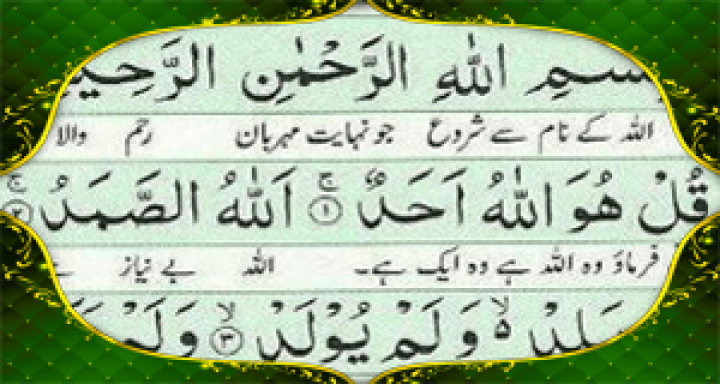 بِسْمِ اللّٰهِ الرَّحْمٰنِ الرَّحِيْمِ
اللہ کے نام سے شروع جو نہایت مہربان رحم والا
قُلْ هُوَ اللّٰهُ اَحَدٌ ۚ‏﴿۱﴾ اَللّٰهُ الصَّمَدُ ۚ‏﴿۲﴾
فرماؤ وہ اللہ ہے وہ ایک ہے۔ اللہ بے نیاز
يَلِدْ ۙ وَلَمْ يُوْلَدْ ۙ‏﴿۳﴾ وَلَمْ